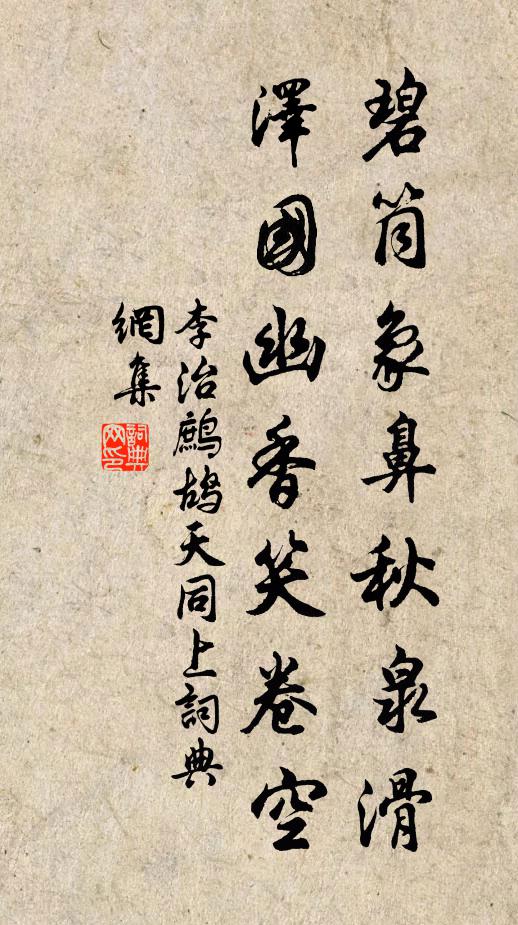 碧筒象鼻秋泉滑
澤國幽香笑卷空
李治鷓鴣天同上詞典
網集
詞典
网印